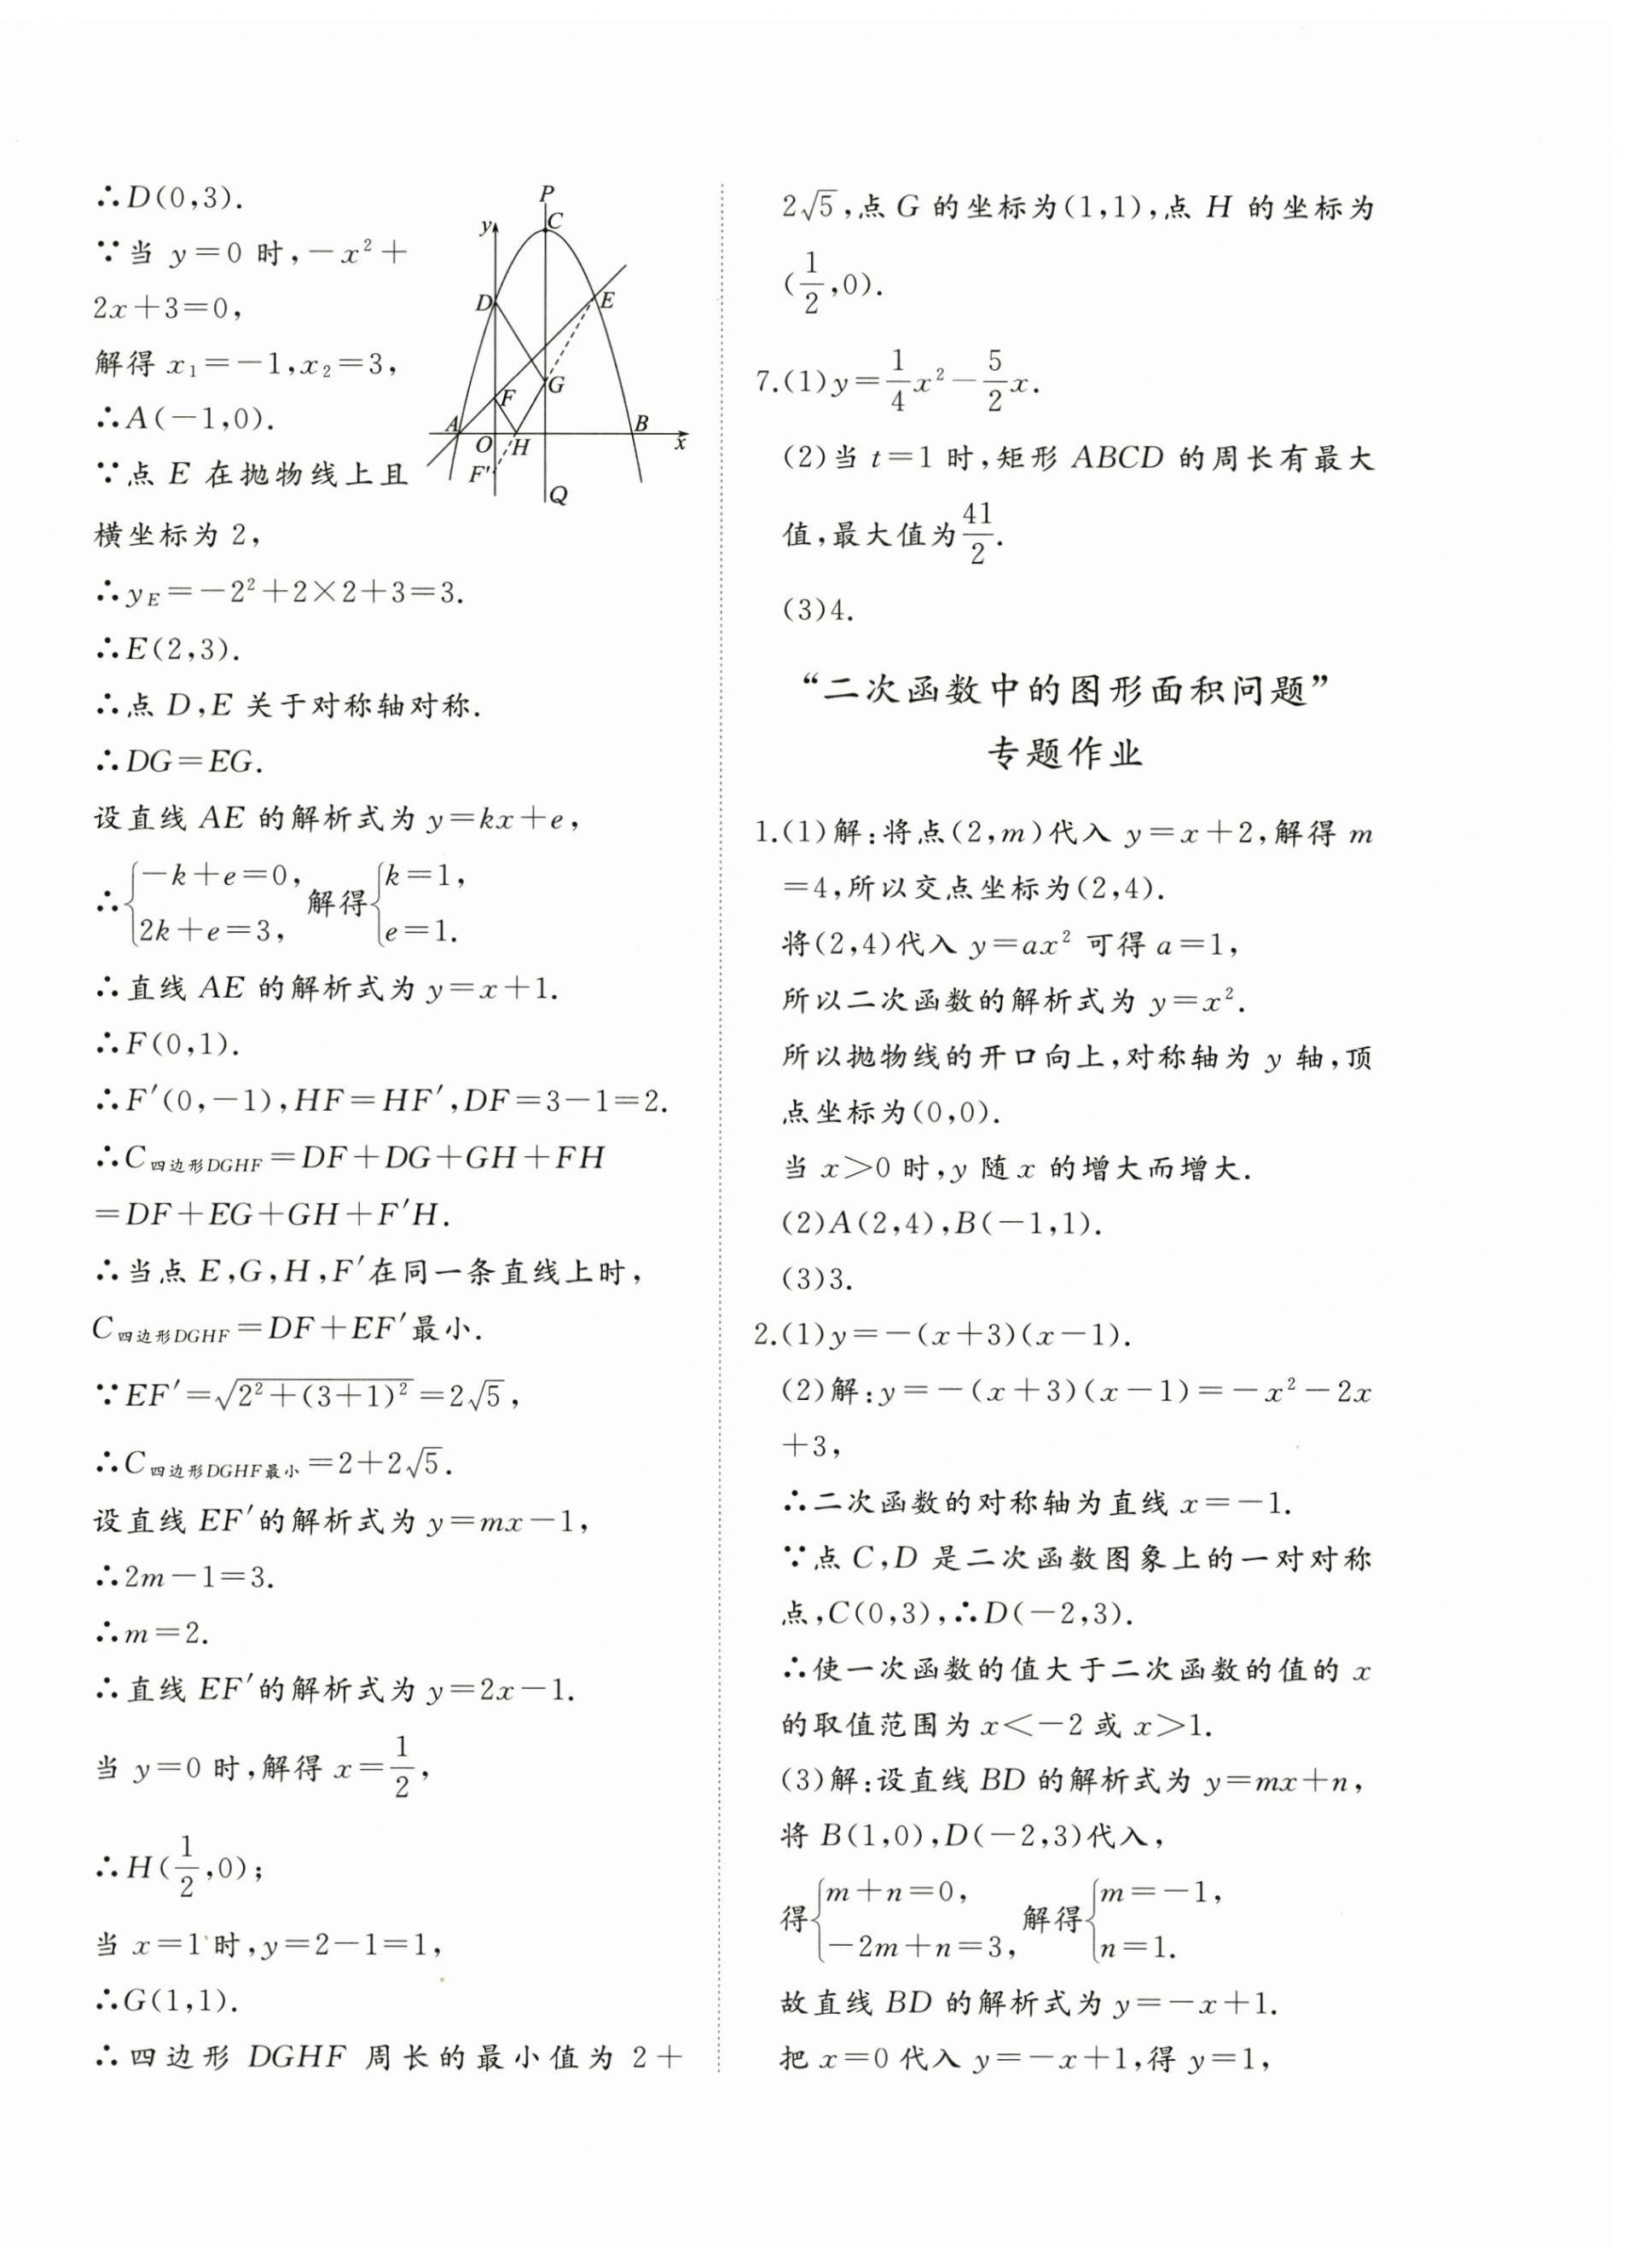 ∴D(0,3).
∵当 y=0 时,-x²+
2x+3=0,
解得 x₁=-1,x₂=3,
∴A(-1,0).
∵点 E 在抛物线上且
横坐标为 2,
P
C
y
D
E
G
F
A
B
O
H
x
F′
Q
∴y_E=-2²+2×2+3=3.
∴E(2,3).
∴点 D,E 关于对称轴对称.
∴DG=EG.
设直线 AE 的解析式为 y=kx+e,
∴{-k+e=0, 2k+e=3, 解得{k=1, e=1.
∴直线 AE 的解析式为 y=x+1.
∴F(0,1).
∴F′(0,-1),HF=HF′,DF=3-1=2.
∴C四边形DGHF=DF+DG+GH+FH
=DF+EG+GH+F′H.
∴当点 E,G,H,F′在同一条直线上时,
C四边形DGHF=DF+EF′最小.
∵EF′=√(2²+(3+1)²)=2√5,
∴C四边形DGHF最小=2+2√5.
设直线 EF′的解析式为 y=mx-1,
∴2m-1=3.
∴m=2.
∴直线 EF′的解析式为 y=2x-1.
当 y=0 时,解得 x=1/2,
∴H(1/2,0);
当 x=1 时,y=2-1=1,
∴G(1,1).
∴四边形 DGHF 周长的最小值为 2+
2√5,点 G 的坐标为(1,1),点 H 的坐标为
(1/2,0).
7.(1)y=1/4x²-5/2x.
(2)当 t=1 时,矩形 ABCD 的周长有最大
值,最大值为41/2.
(3)4.
“二次函数中的图形面积问题”
专题作业
1.(1)解:将点(2,m)代入 y=x+2,解得 m
=4,所以交点坐标为(2,4).
将(2,4)代入 y=ax² 可得 a=1,
所以二次函数的解析式为 y=x².
所以抛物线的开口向上,对称轴为 y 轴,顶
点坐标为(0,0).
当 x>0 时,y 随 x 的增大而增大.
(2)A(2,4),B(-1,1).
(3)3.
2.(1)y=-(x+3)(x-1).
(2)解:y=-(x+3)(x-1)=-x²-2x
+3,
∴二次函数的对称轴为直线 x=-1.
∵点 C,D 是二次函数图象上的一对对称
点,C(0,3),∴D(-2,3).
∴使一次函数的值大于二次函数的值的 x
的取值范围为 x<-2 或 x>1.
(3)解:设直线 BD 的解析式为 y=mx+n,
将 B(1,0),D(-2,3)代入,
得{m+n=0, -2m+n=3, 解得{m=-1, n=1.
故直线 BD 的解析式为 y=-x+1.
把 x=0 代入 y=-x+1,得 y=1,